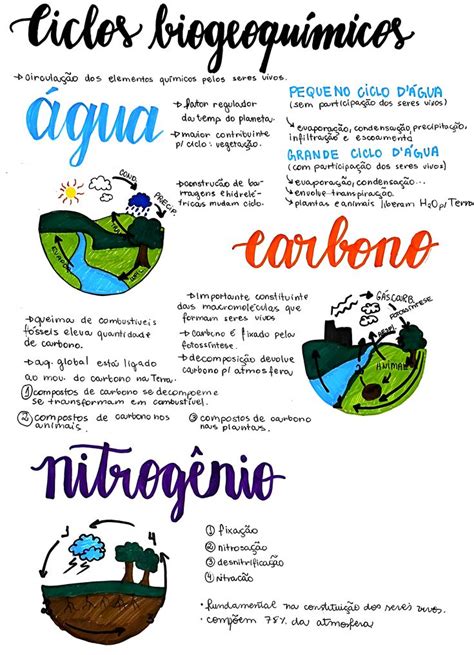 Ciclos biogeoquímicos
→ circulação dos elementos químicos pelos seres vivos.
água
→ fator regulador
da temp do planeta.
→ maior contribuinte
p/ ciclo: vegetação.
→ construção de bar-
ragens e hidrelé-
tricas mudam ciclo.
PEQUENO CICLO D'ÁGUA
(sem participação dos seres vivos)
↳ evaporação, condensação, precipitação,
infiltração e escoamento
GRANDE CICLO D'ÁGUA
(com participação dos seres vivos)
↳ evaporação, condensação...
→ envolve transpiração.
→ plantas e animais liberam H₂O p/ Terra
COND.
PRECIP.
EVAPOR.
carbono
→ Importante constituinte
das macromoléculas que
formam seres vivos
→ carbono é fixado pela
fotossíntese.
→ decomposição devolve
carbono p/ atmosfera
→ queima de combustíveis
fósseis eleva quantidade
de carbono.
→ aq. global está ligado
ao mov. do carbono na Terra.
① compostos de carbono se decompoem e
se transformam em combustível.
② compostos de carbono nos
animais.
③ compostos de carbono
nas plantas.
GÁS CARB.
FOTOSSÍNTESE
RESPI.
ANIMAL
nitrogênio
① fixação
② nitrosação
③ desnitrificação
④ nitração
• fundamental na constituição dos seres vivos.
• compõem 78% da atmosfera